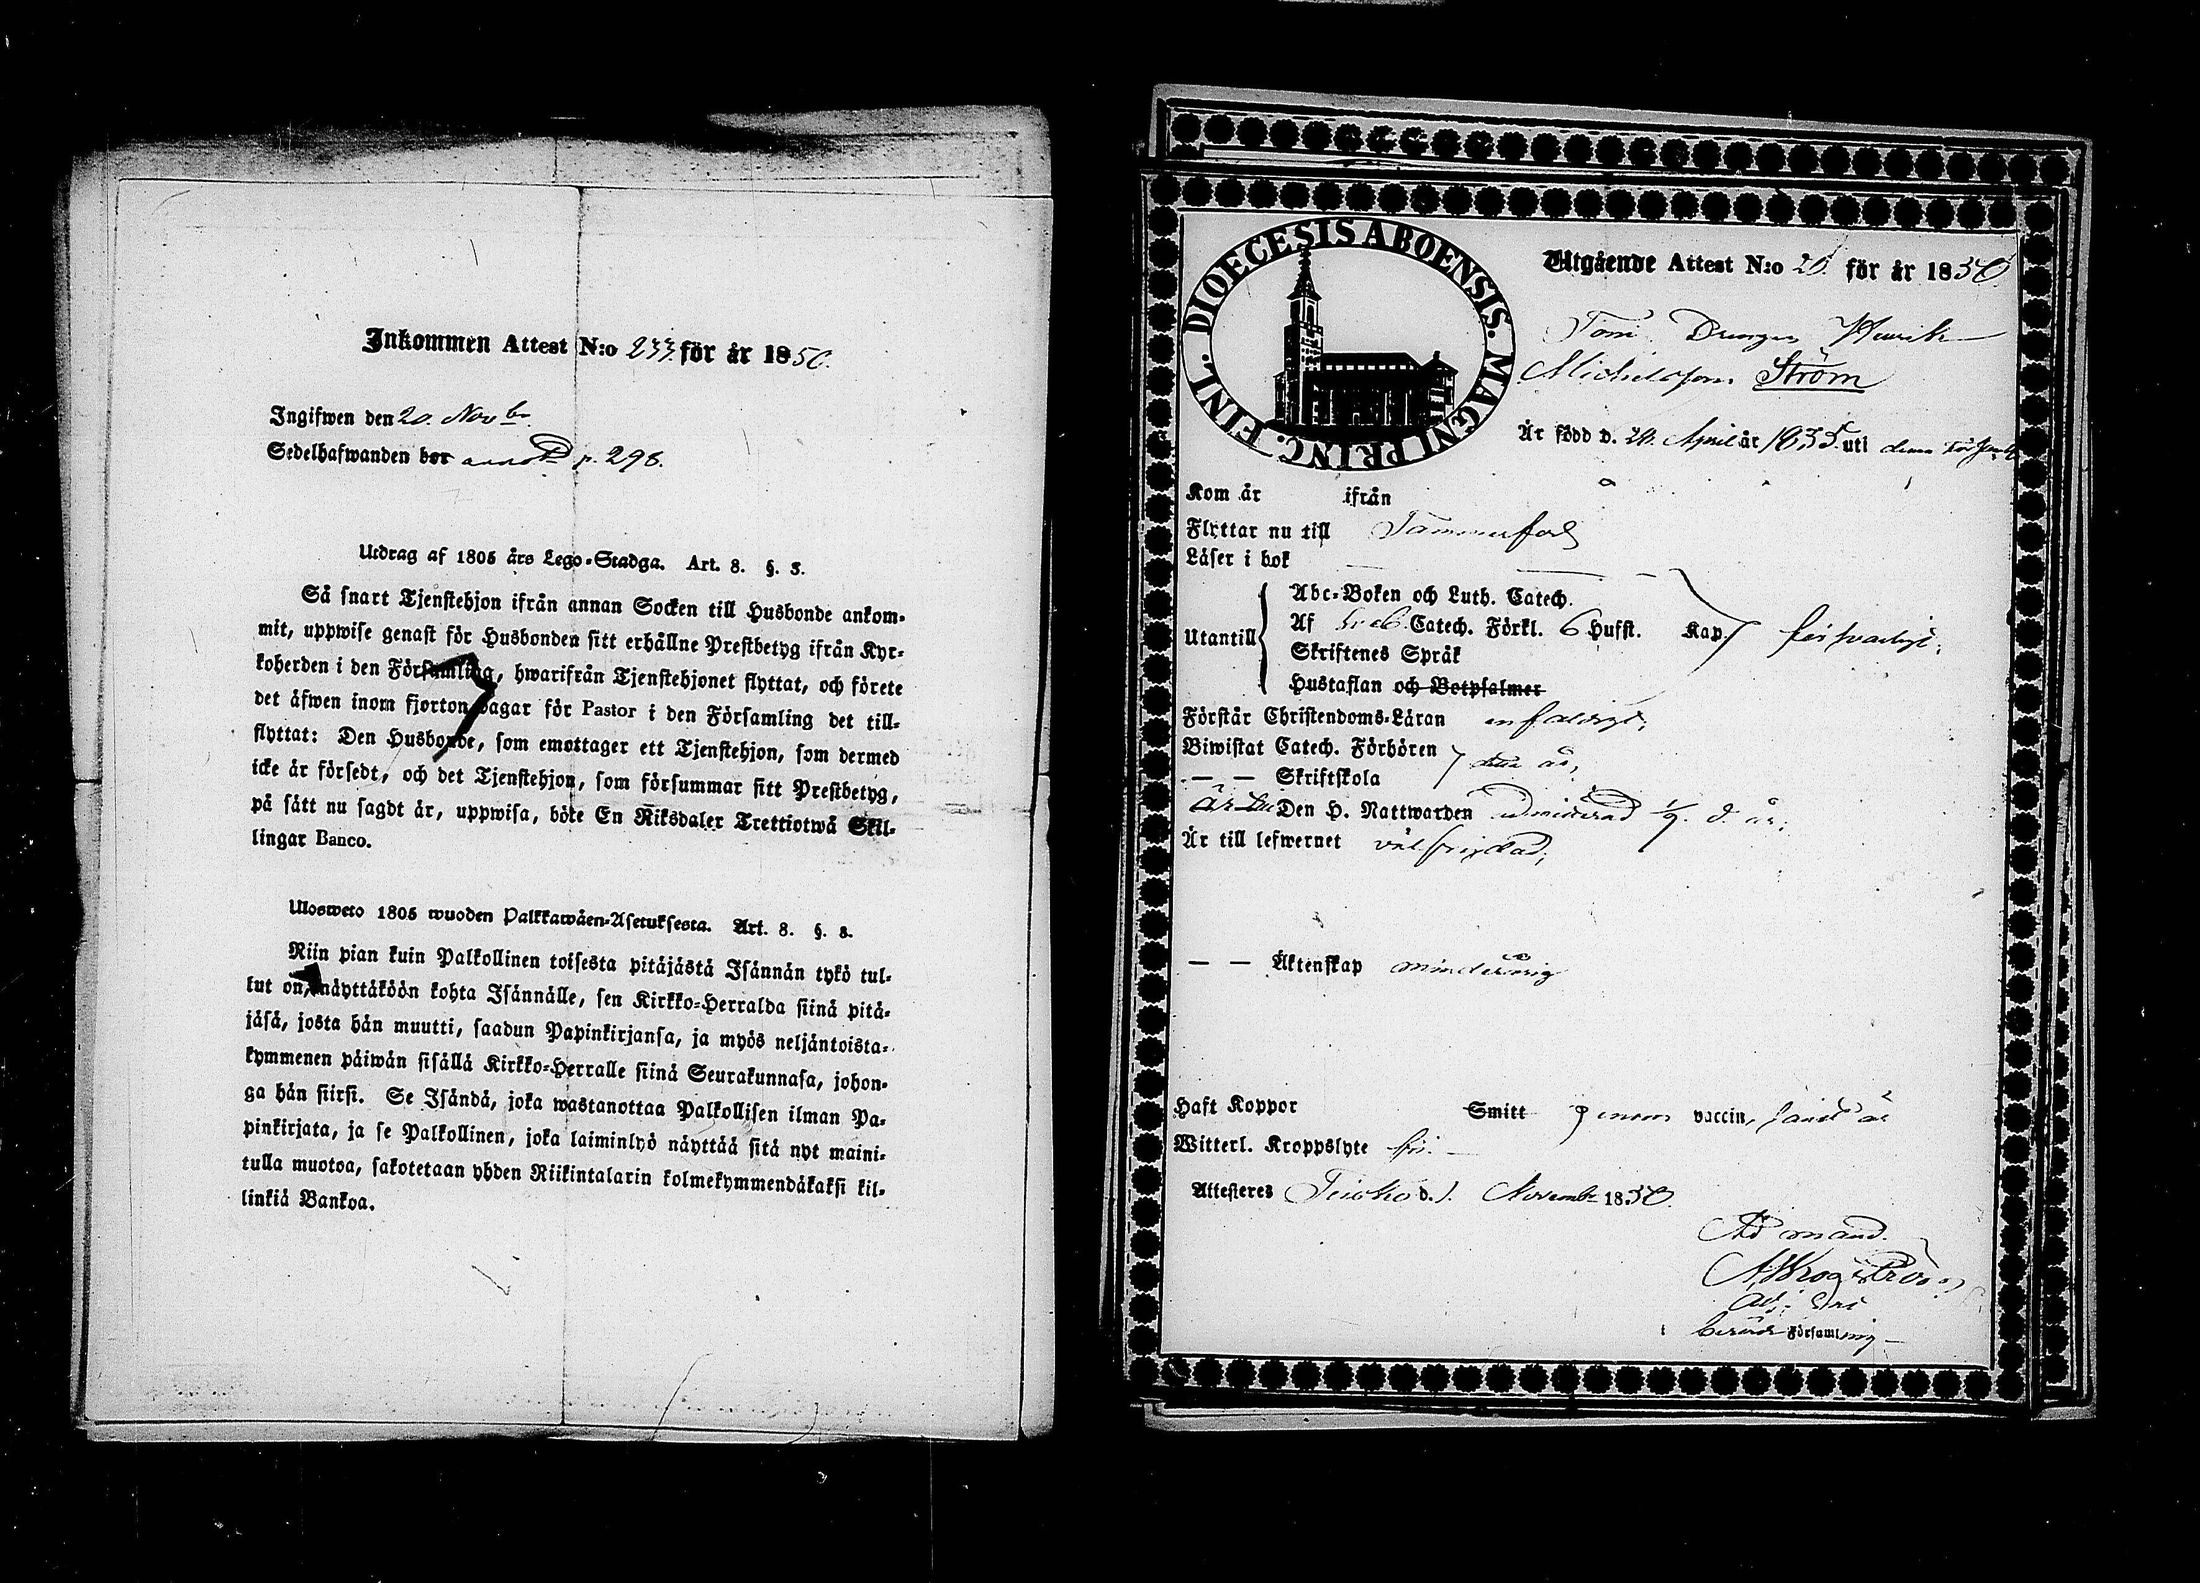 Inkommen Attest N:o 233 för år 1850.
Ingifwen den 20. Novbr.
Sedelhafwanden bor p. 298.
Utdrag af 1805 års Lego-Stadga. Art. 8. §. 3.
Så snart Tjenstehjon ifrån annan Socken till Husbonde ankom-
mit, uppwise genast för Husbonden sitt erhållne Prestbetyg ifrån Kyr-
koherden i den Församling, hwarifrån Tjenstehjonet flyttat, och förete
det äfwen inom fjorton dagar för Pastor i den Församling det till-
flyttat: Den Husbonde, som emottager ett Tjenstehjon, som dermed
icke är försedt, och det Tjenstehjon, som försummar sitt Prestbetyg,
på sätt nu sagdt är, uppwisa, böte En Riksdaler Trettiotwå Skil-
lingar Banco.
Ulosweto 1805 wuoden Palkkawäen-Asetuksesta. Art. 8. §. 3.
Niin pian kuin Palkollinen toisesta pitäjästä Isännän tykö tul-
lut on, näyttäköön kohta Isännälle, sen Kirkko-Herralda siinä pitä-
jäsä, josta hän muutti, saadun Papinkirjansa, ja myös neljäntoista-
kymmenen päiwän sisällä Kirkko-Herralle siinä Seurakunnasa, johon-
ga hän siirsi. Se Isändä, joka wastanottaa Palkollisen ilman Pa-
pinkirjata, ja se Palkollinen, joka laiminlyö näyttää sitä nyt maini-
tulla muotoa, sakotetaan yhden Riikintalarin kolmekymmendäkaksi kil-
linkiä Bankoa.
DIOECESIS ABOENSIS. MAGNI PRINC. FINL.
Utgående Attest N:o 20 för år 1850
Drengen Henrik
Michelsson Ström
Är född d. 20. April år 1835. uti denna Församl.
Kom år ifrån
Flyttar nu till Tammerfors
Läser i bok
Utantill
Abc-Boken och Luth. Catech.
Af Sveb. Catech. Förkl. 6 Hufst. Kap. försvarligt.
Skriftenes Språk
Hustaflan och Botpsalmer
Förstår Christendoms-Läran enfaldigt.
Biwistat Catech. Förhören detta år,
— — Skriftskola
Den H. Nattwarden admitterad d. år.
Är till lefwernet välfrejdad,
— — Äktenskap minderårig
Haft Koppor Smitt genom vaccin,
Witterl. Kroppslyte fri.
Attesteras Teisko d. 1. November 1850.
Ad mand.
Adj.
berörde Församling